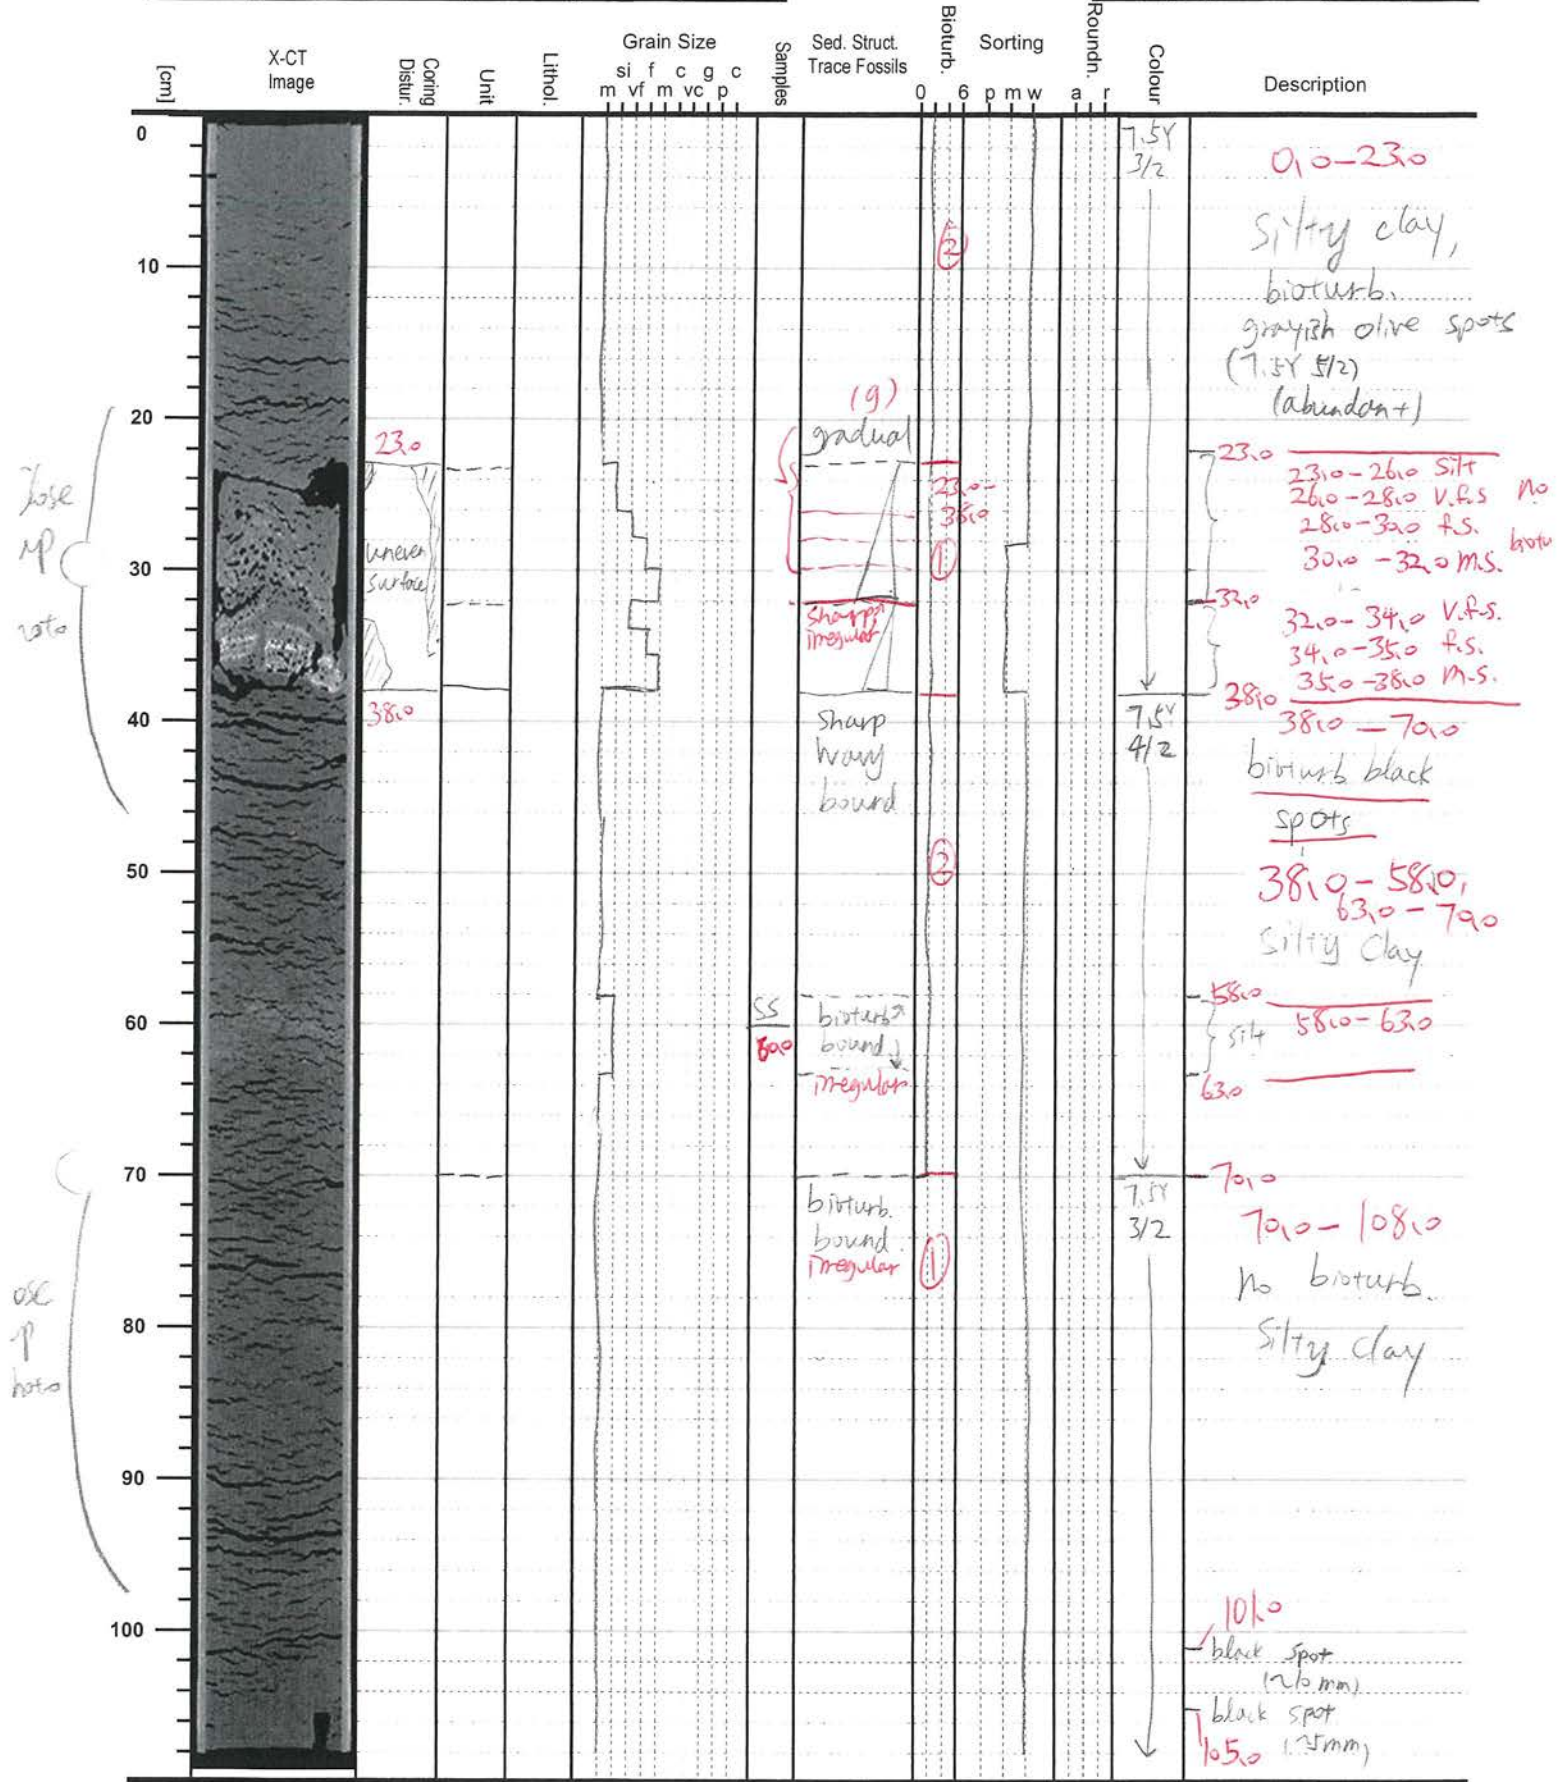 [cm]
X-CT
Image
Coring
Distur.
Unit
Lithol.
Grain Size
si f c g c
m vf m vc p
Samples
Sed. Struct.
Trace Fossils
Bioturb.
0 6
Sorting
p m w
Roundn.
a r
Colour
Description
0
10
20
30
40
50
60
70
80
90
100
up
23.0
uneven
surface
38.0
(g)
gradual
sharp,
irregular
sharp
wavy
bound
SS
60.0
bioturb.
bound
irregular
bioturb.
bound.
irregular
2
23.0-
38.0
1
2
1
7.5Y
3/2
7.5Y
4/2
7.5Y
3/2
0.0-23.0
Silty clay,
bioturb.
grayish olive spots
(7.5Y 5/2)
(abundant)
23.0
23.0-26.0 Silt
26.0-28.0 v.f.s no
28.0-30.0 f.s.
30.0-32.0 m.s. biotu
32.0
32.0-34.0 v.f.s.
34.0-35.0 f.s.
35.0-38.0 m.s.
38.0
38.0-70.0
bioturb black
spots
38.0-58.0,
63.0-70.0
Silty clay
58.0
58.0-63.0
silt
63.0
70.0
70.0-108.0
no bioturb.
Silty clay
101.0
black spot
black spot
105.0 (~5mm)